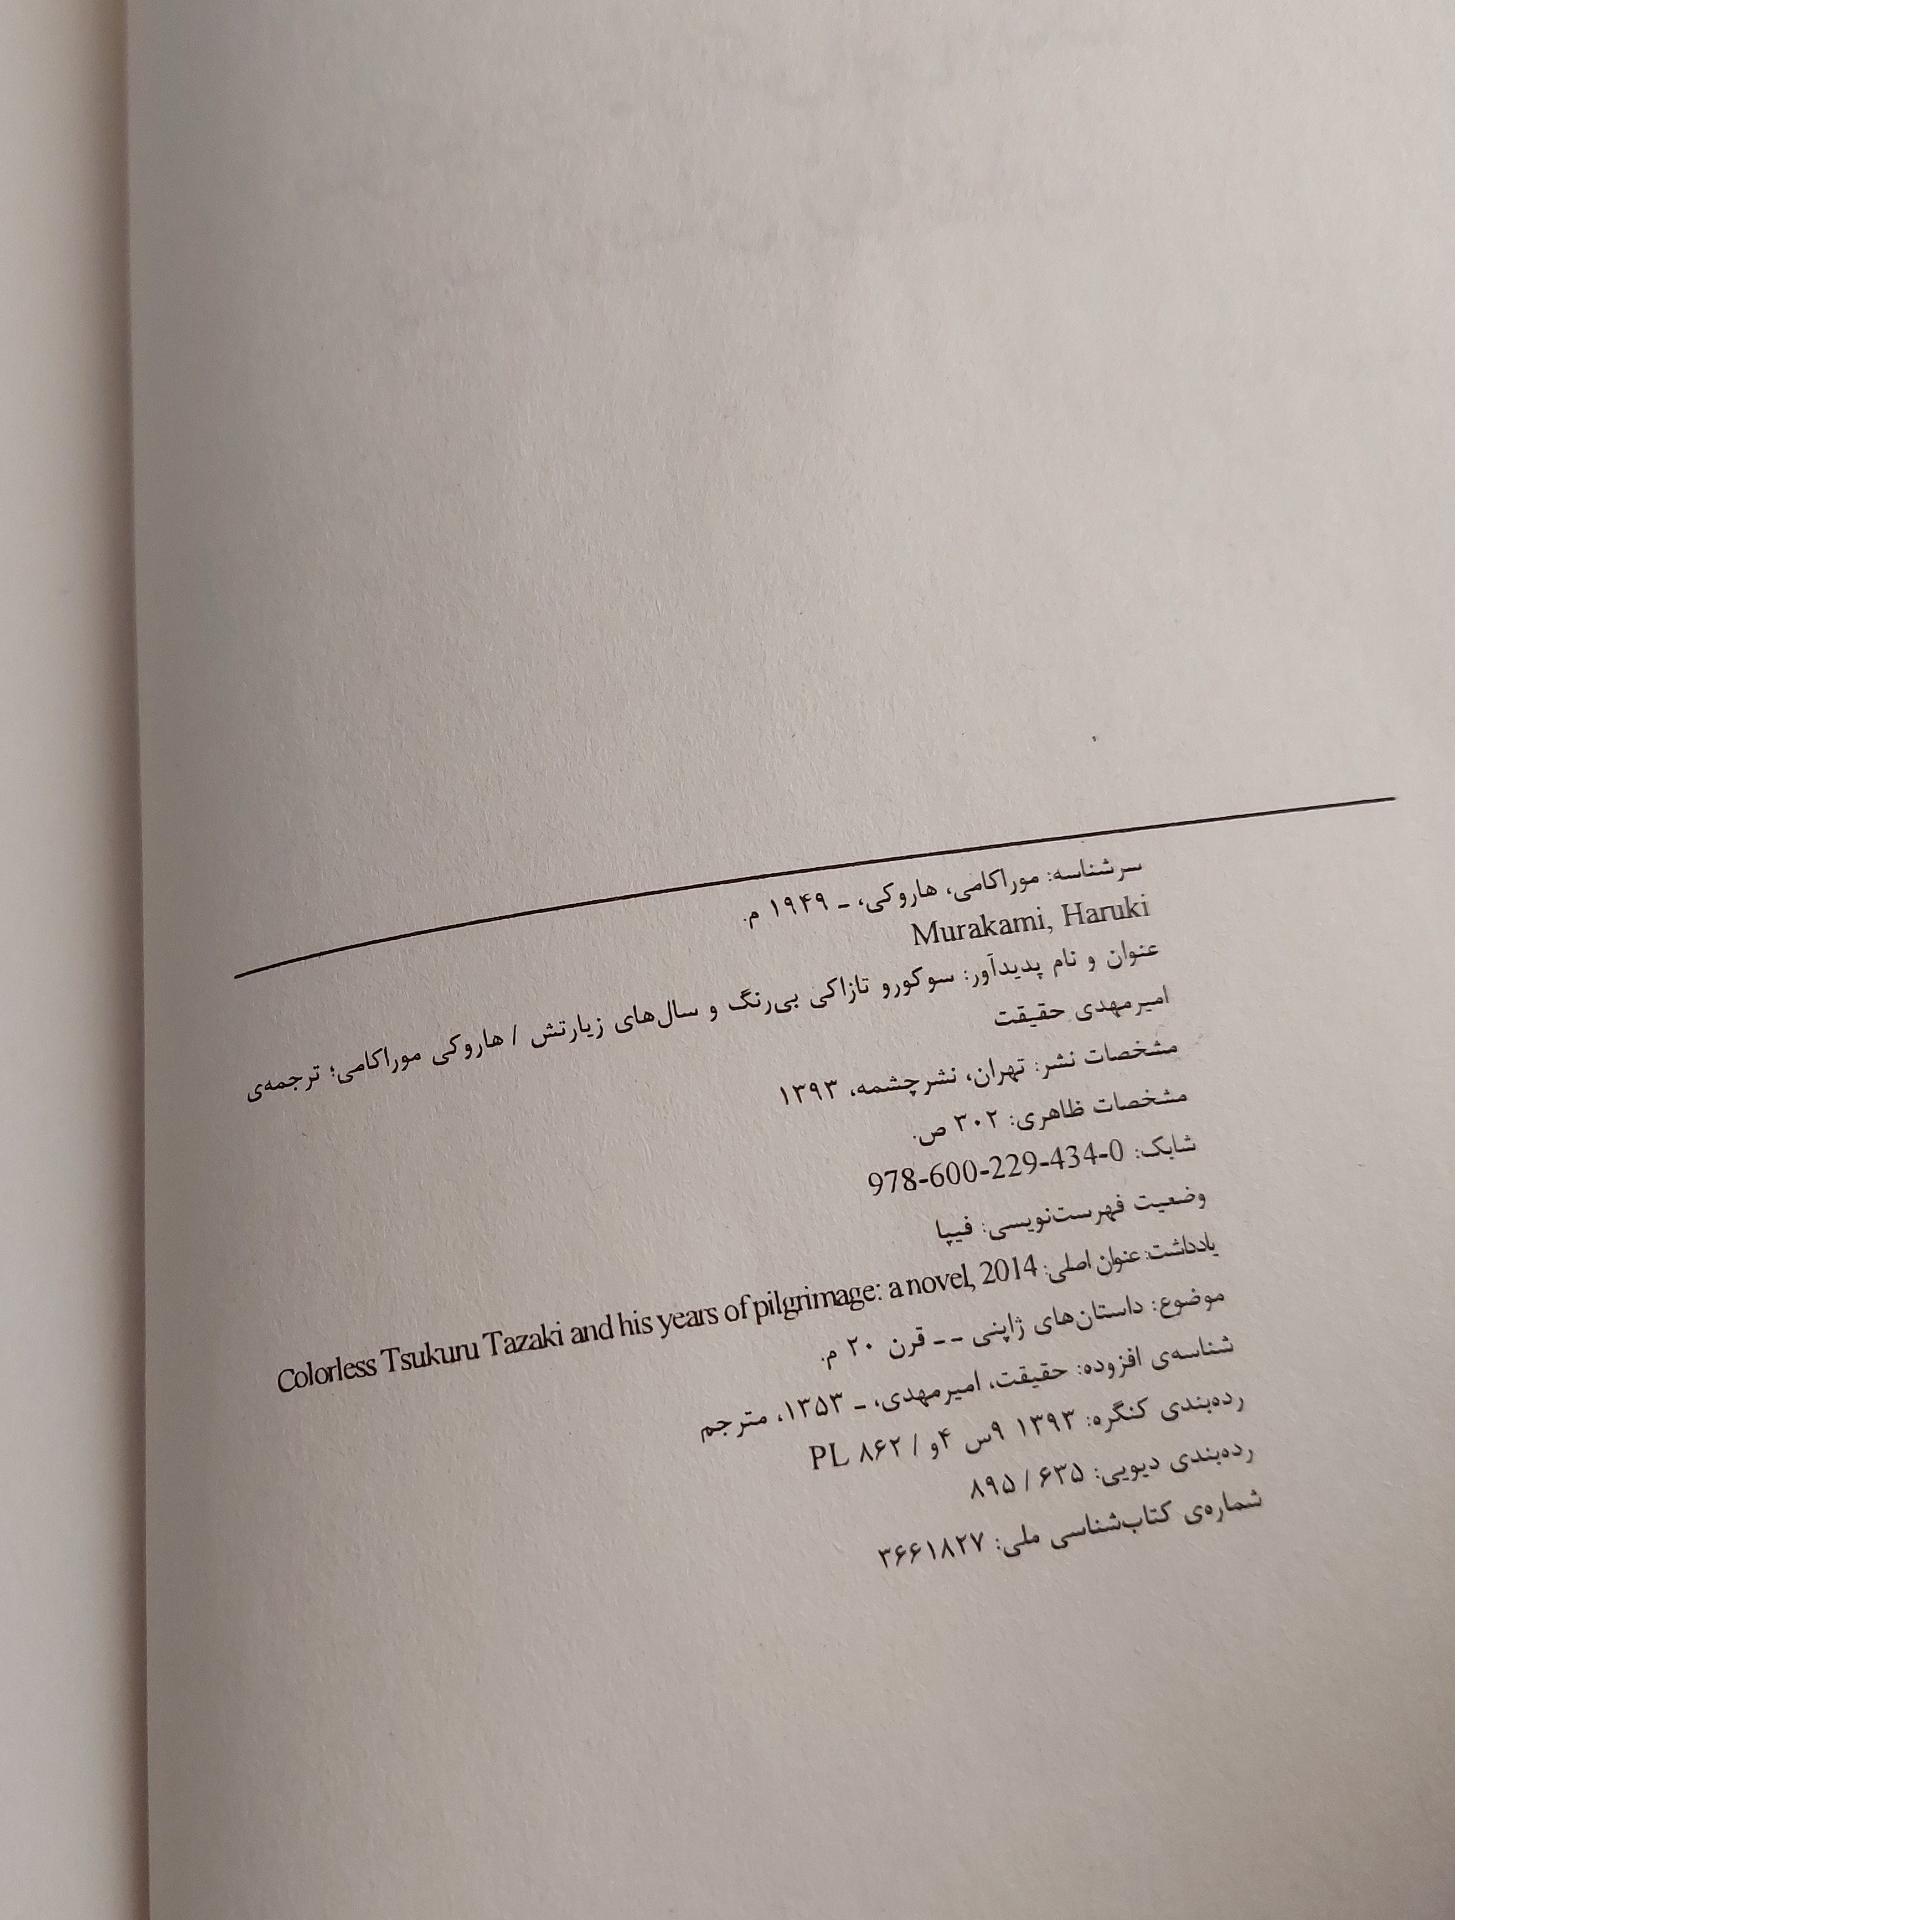 سرشناسه: موراکامی، هاروکی، ـ ۱۹۴۹ م.
Murakami, Haruki
عنوان و نام پدیدآور: سوکورو تازاکی بی‌رنگ و سال‌های زیارتش / هاروکی موراکامی؛ ترجمه‌ی
امیرمهدی حقیقت
مشخصات نشر: تهران، نشرچشمه، ۱۳۹۳
مشخصات ظاهری: ۳۰۲ ص.
شابک: 978-600-229-434-0
وضعیت فهرست‌نویسی: فیپا
یادداشت: عنوان اصلی: Colorless Tsukuru Tazaki and his years of pilgrimage: a novel, 2014
موضوع: داستان‌های ژاپنی ـ ـ قرن ۲۰ م.
شناسه‌ی افزوده: حقیقت، امیرمهدی، ـ ۱۳۵۳، مترجم
رده‌بندی کنگره: ۱۳۹۳ ۹س ۴و / PL ۸۶۲
رده‌بندی دیویی: ۶۳۵ / ۸۹۵
شماره‌ی کتاب‌شناسی ملی: ۳۶۶۱۸۲۷